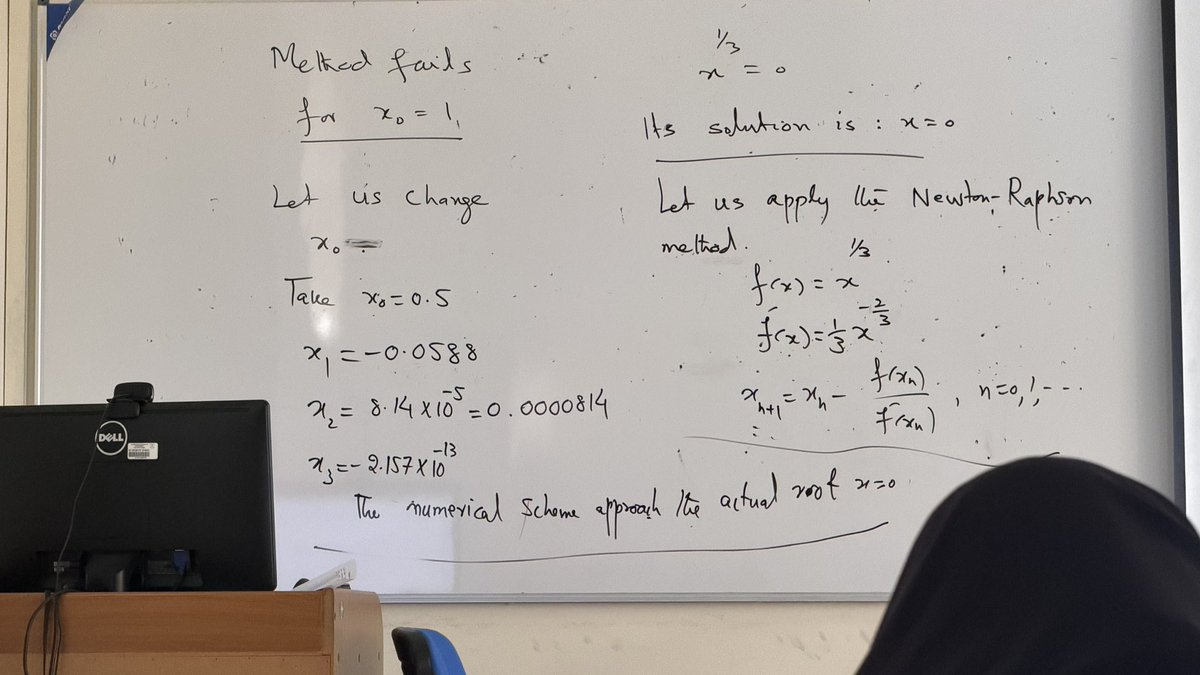 Method fails
for x₀ = 1,
Let us change
x₀ =
Take x₀ = 0.5
x₁ = -0.0588
x₂ = 8.14 X 10⁻⁵ = 0.0000814
x₃ = - 2.157 X 10⁻¹³
The numerical scheme approach the actual root x=0
x^{1/3} = 0
Its solution is : x = 0
Let us apply the Newton-Raphson
method.
f(x) = x^{1/3}
f'(x) = 1/3 x^{-2/3}
xₙ₊₁ = xₙ - f(xₙ)/f'(xₙ), n=0,1,---
DELL